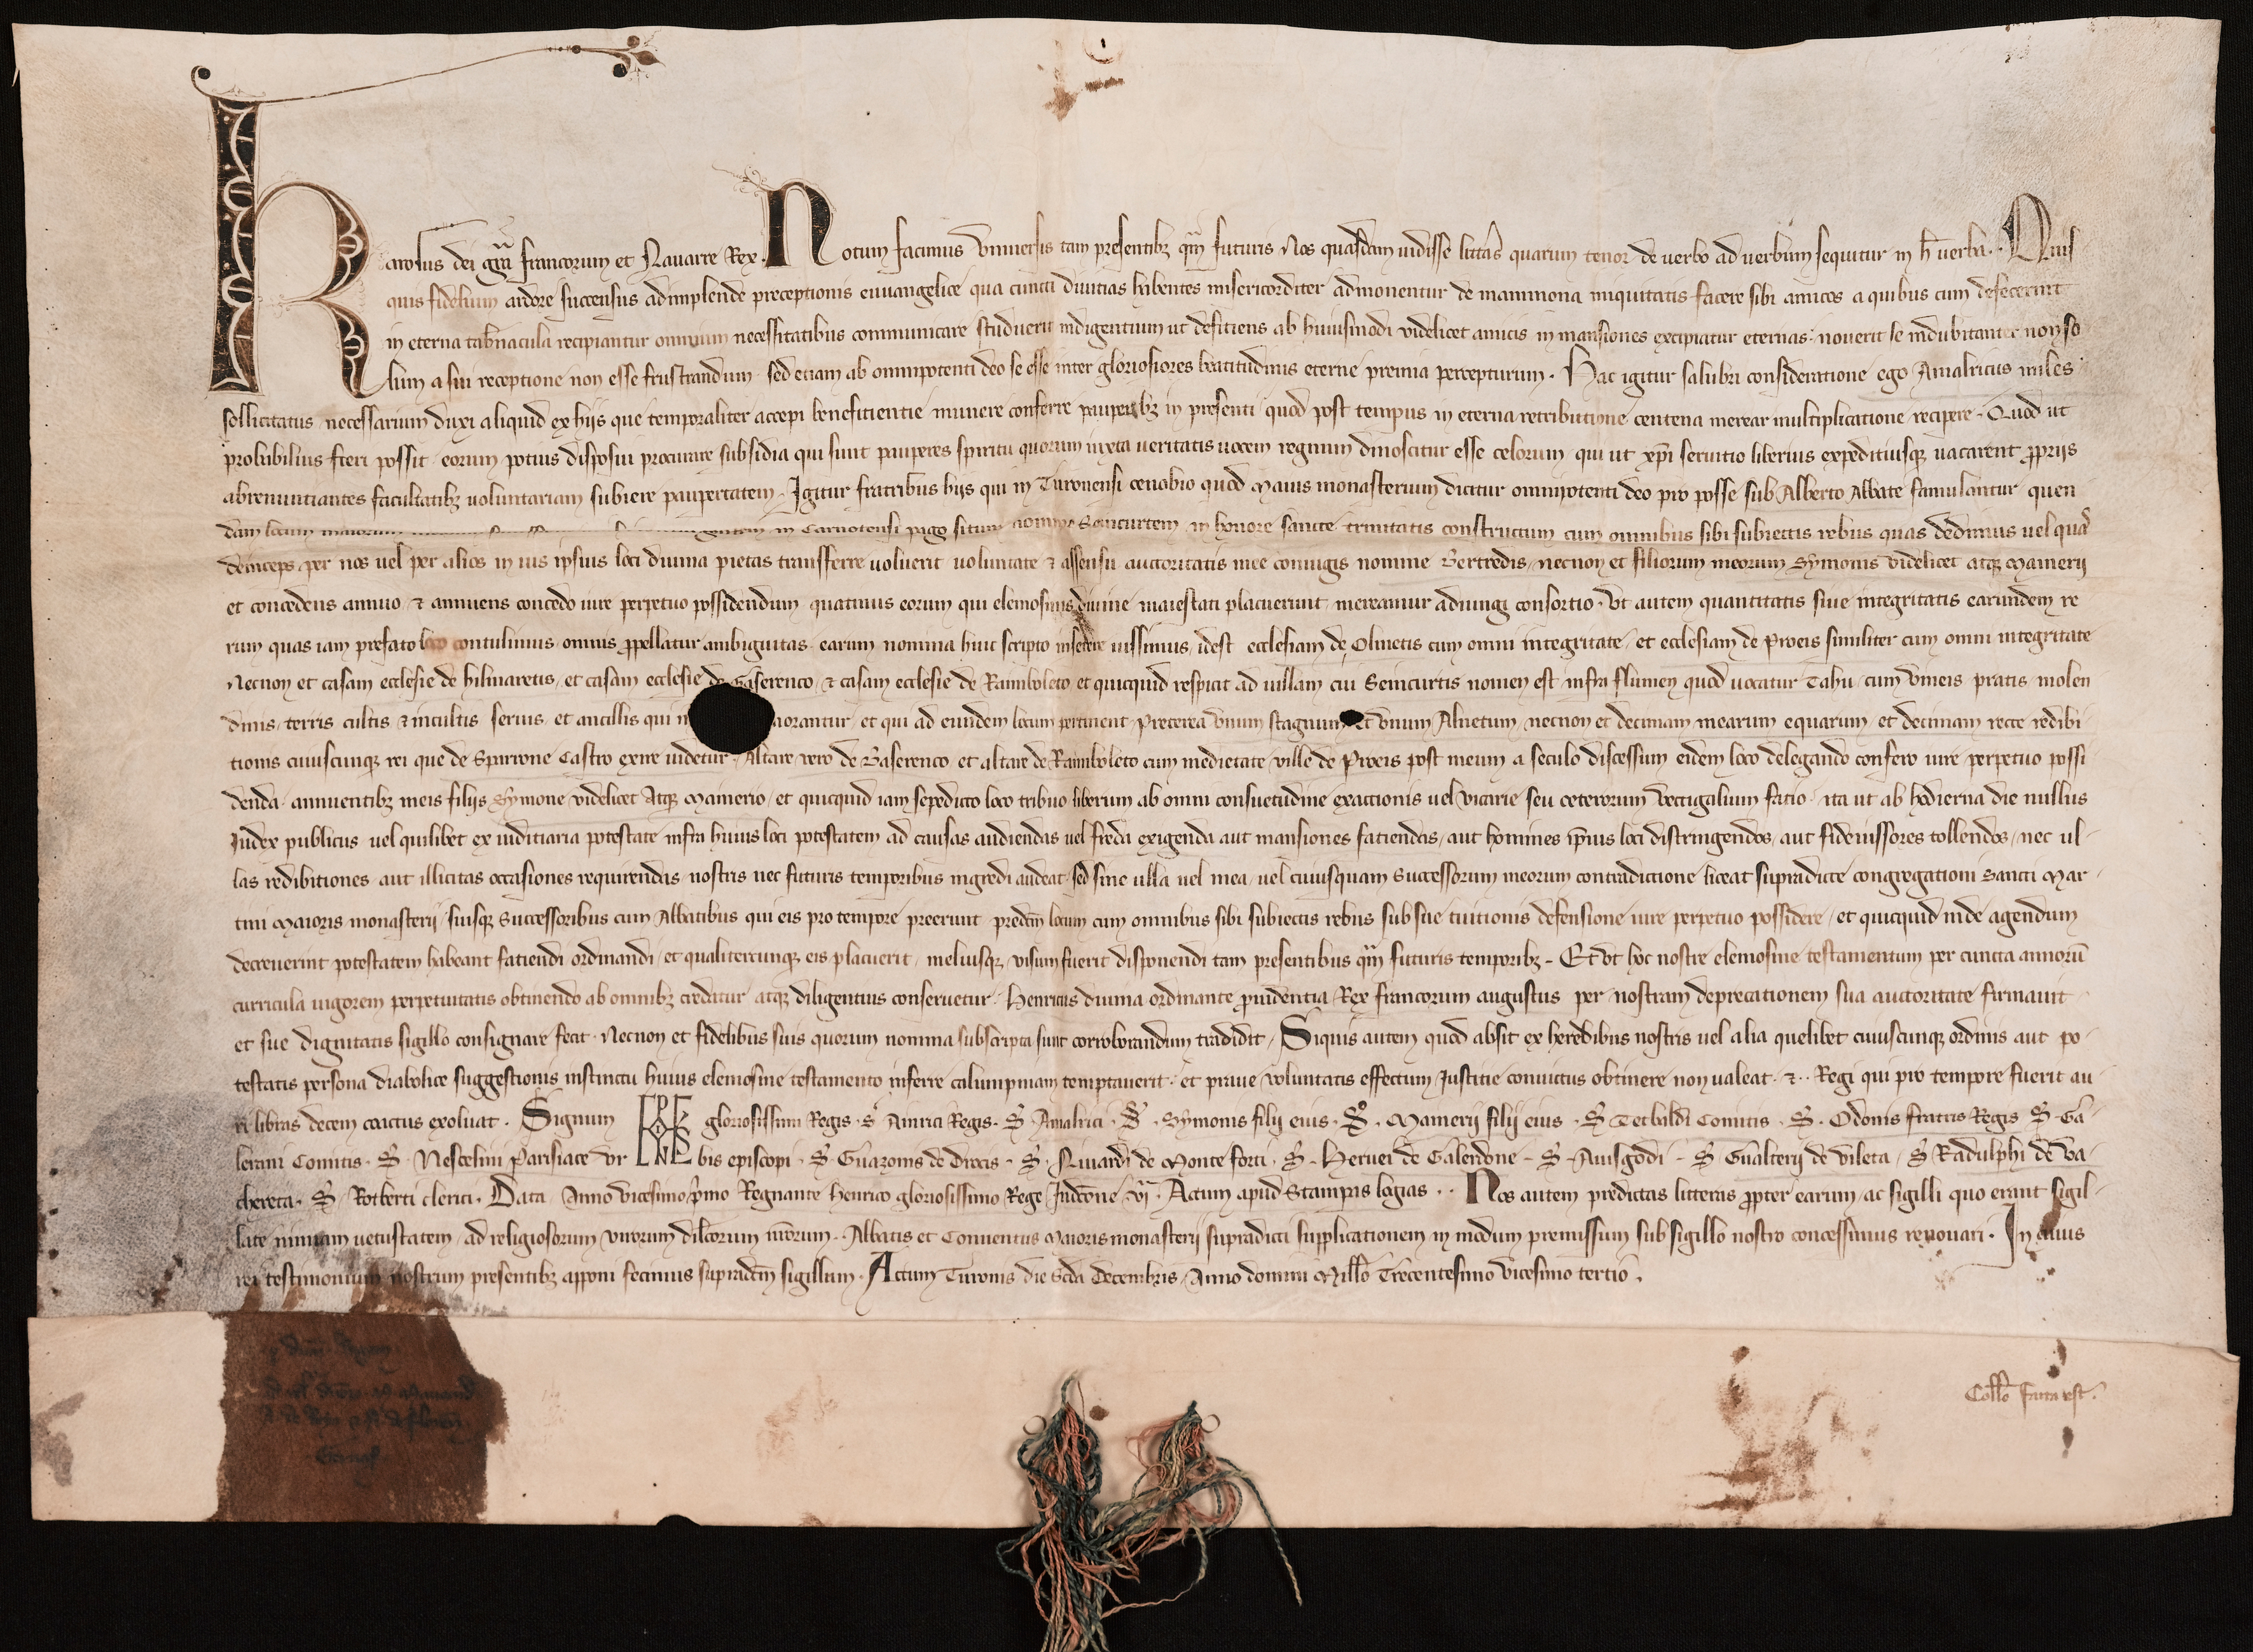 Karolus dei gr̄a francorum et Nauarre Rex. Notum facimus Vniuersis tam presentibꝫ qͣm futuris Nos quasdam uidisse litteras quarum tenor de uerbo ad uerbum sequitur in h̄ uerba. Quis
quis fidelium ardore succensus adimplende preceptionis euuangelice qua cuncti diuitias habentes misericorditer admonentur de mammona iniquitatis facere sibi amicos a quibus cum defecerint
in eterna tab̄nacula recipiantur omnium necessitatibus communicare studuerit indigentium ut defitiens ab huiusmodi videlicet amicis in mansiones excipiatur eternas. nouerit se indubitanter non so
lum a sui receptione non esse frustrandum sed etiam ab omnipotenti deo se esse inter gloriosiores beatitudinis eterne premia percepturum. Hac igitur salubri consideratione ego Amalricus miles
sollicitatus necessarium duxi aliquid ex hijs que temporaliter accepi beneficientie munere conferre pauperibꝫ in presenti quod post tempus in eterna retributione centena merear multiplicatione recipere. Quod ut
probabilius fieri possit eorum potius disposui procurare subsidia qui sunt pauperes spiritu quorum iuxta ueritatis uocem regnum dinoscitur esse celorum qui ut xp̄i seruitio liberius expeditiusqꝫ uacarent ꝓprijs
abrenuntiantes facultatibꝫ uoluntariam subiere paupertatem. Igitur fratribus hijs qui in Turonensi cenobio quod Maius monasterium dicitur omnipotenti deo pro posse sub Alberto Abbate famulantur quen
dam locum in Carnotensi pago situm nomine Seincurtem in honore sancte trinitatis constructum cum omnibus sibi subiectis rebus quas dedimus uel quas
deinceps per nos uel per alios in ius ipsius loci diuina pietas transferre uoluerit uoluntate ⁊ assensu auctoritatis mee coniugis nomine Bertredis necnon et filiorum meorum Symonis videlicet atqꝫ Mainerij
et concedens annuo ⁊ annuens concedo iure perpetuo possidendum quatinus eorum qui elemosinis diuine maiestati placuerunt mereamur adiungi consortio. Vt autem quantitatis siue integritatis earundem re
rum quas iam prefato loco contulimus omnis ꝓpellatur ambiguitas earum nomina huic scripto inserere iussimus idest ecclesiam de Olmetis cum omni integritate et ecclesiam de Proeis similiter cum omni integritate
Necnon et casam ecclesie de bilinaretis et casam ecclesie de Gaserenco ⁊ casam ecclesie de Raimboleto et quicquid respicit ad uillam cui Seincurtis nomen est infra flumen quod uocatur Tahu cum vineis pratis molen
dinis terris cultis ⁊ incultis seruis et ancillis qui morantur et qui ad eundem locum pertinent Preterea vnum stagnum et vnum Alnetum necnon et decimam mearum equarum et decimam recte redibi
tionis cuiuscunqꝫ rei que de Sparrone Castro exire uidetur. Altare vero de Gaserenco et altare de Raimboleto cum medietate ville de Proeis post meum a seculo discessum eidem loco delegando confero iure perpetuo possi
denda annuentibꝫ meis filijs Symone videlicet Atqꝫ Mainerio et quicquid iam sepedicto loco tribuo liberum ab omni consuetudine exactionis uel vicarie seu ceterorum vectigalium facio ita ut ab hodierna die nullus
Iudex publicus uel quilibet ex iuditiaria potestate infra huius loci potestatem ad causas audiendas uel freda exigenda aut mansiones fatiendas aut homines ip̄ius loci distringendos aut fideiussores tollendos nec ul
las redibitiones aut illicitas occasiones requirendas nostris nec futuris temporibus ingredi audeat sed sine ulla uel mea uel cuiusquam Successorum meorum contradictione liceat supradicte congregationi Sancti Mar
tini Maioris monasterij suisqꝫ Successoribus cum Abbatibus qui eis pro tempore preerunt predc̄m locum cum omnibus sibi subiectis rebus sub sue tuitionis defensione iure perpetuo possidere et quicquid inde agendum
decreuerint potestatem habeant fatiendi ordinandi et qualitercunqꝫ eis placuerit meliusqꝫ visum fuerit disponendi tam presentibus qͣm futuris temporibꝫ. Et vt hoc nostre elemosine testamentum per cuncta annorū
curricula uigorem perpetuitatis obtinendo ab omnibꝫ credatur atqꝫ diligentius conseruetur. Henricus diuina ordinante ꝓuidentia Rex francorum augustus per nostram deprecationem sua auctoritate firmauit
et sue dignitatis sigillo consignare fecit. Necnon et fidelibus suis quorum nomina subscripta sunt corroborandum tradidit. Siquis autem quod absit ex heredibus nostris uel alia quelibet cuiuscunqꝫ ordinis aut po
testatis persona diabolice suggestionis instinctu huius elemosine testamento inferre calumpniam temptauerit et praue voluntatis effectum Iustitie conuictus obtinere non ualeat ⁊ Regi qui pro tempore fuerit au
ri libras decem coactus exoluat. Signum gloriosissimi Regis. S. Ainrici Regis. S. Amalrici. S. Symonis filij eius. S. Mainerij filij eius. S. Tetbaldi Comitis. S. Odonis fratris Regis S. Ga
lerani Comitis. S. Nescelini Parisiace vr bis episcopi. S. Guazonis de Drocis. S. Riuardi de Monte forti. S. Heruei de Galerdone. S. Auisgodi. S. Gualterij de vileta. S. Radulphi de Ba
chereta. S. Rotberti clerici. Data Anno vicesimo p̄mo Regnante Henrico gloriosissimo Rege Indc̄one vj. Actum apud Stampis logias. Nos autem predictas litteras ꝓpter earum ac sigilli quo erant sigil
late nimiam uetustatem ad religiosorum virorum dilc̄orum nr̄orum. Abbatis et Conuentus Maioris monasterij supradicti supplicationem in modum premissum sub sigillo nostro concessimus renouari. In cuius
rei testimonium nostrum presentibꝫ apponi fecimus supradc̄m sigillum. Actum Turonis die Scd̄a Decembris Anno domini Mill̄o Trecentesimo vicesimo tertio.
Coll̄o facta est.